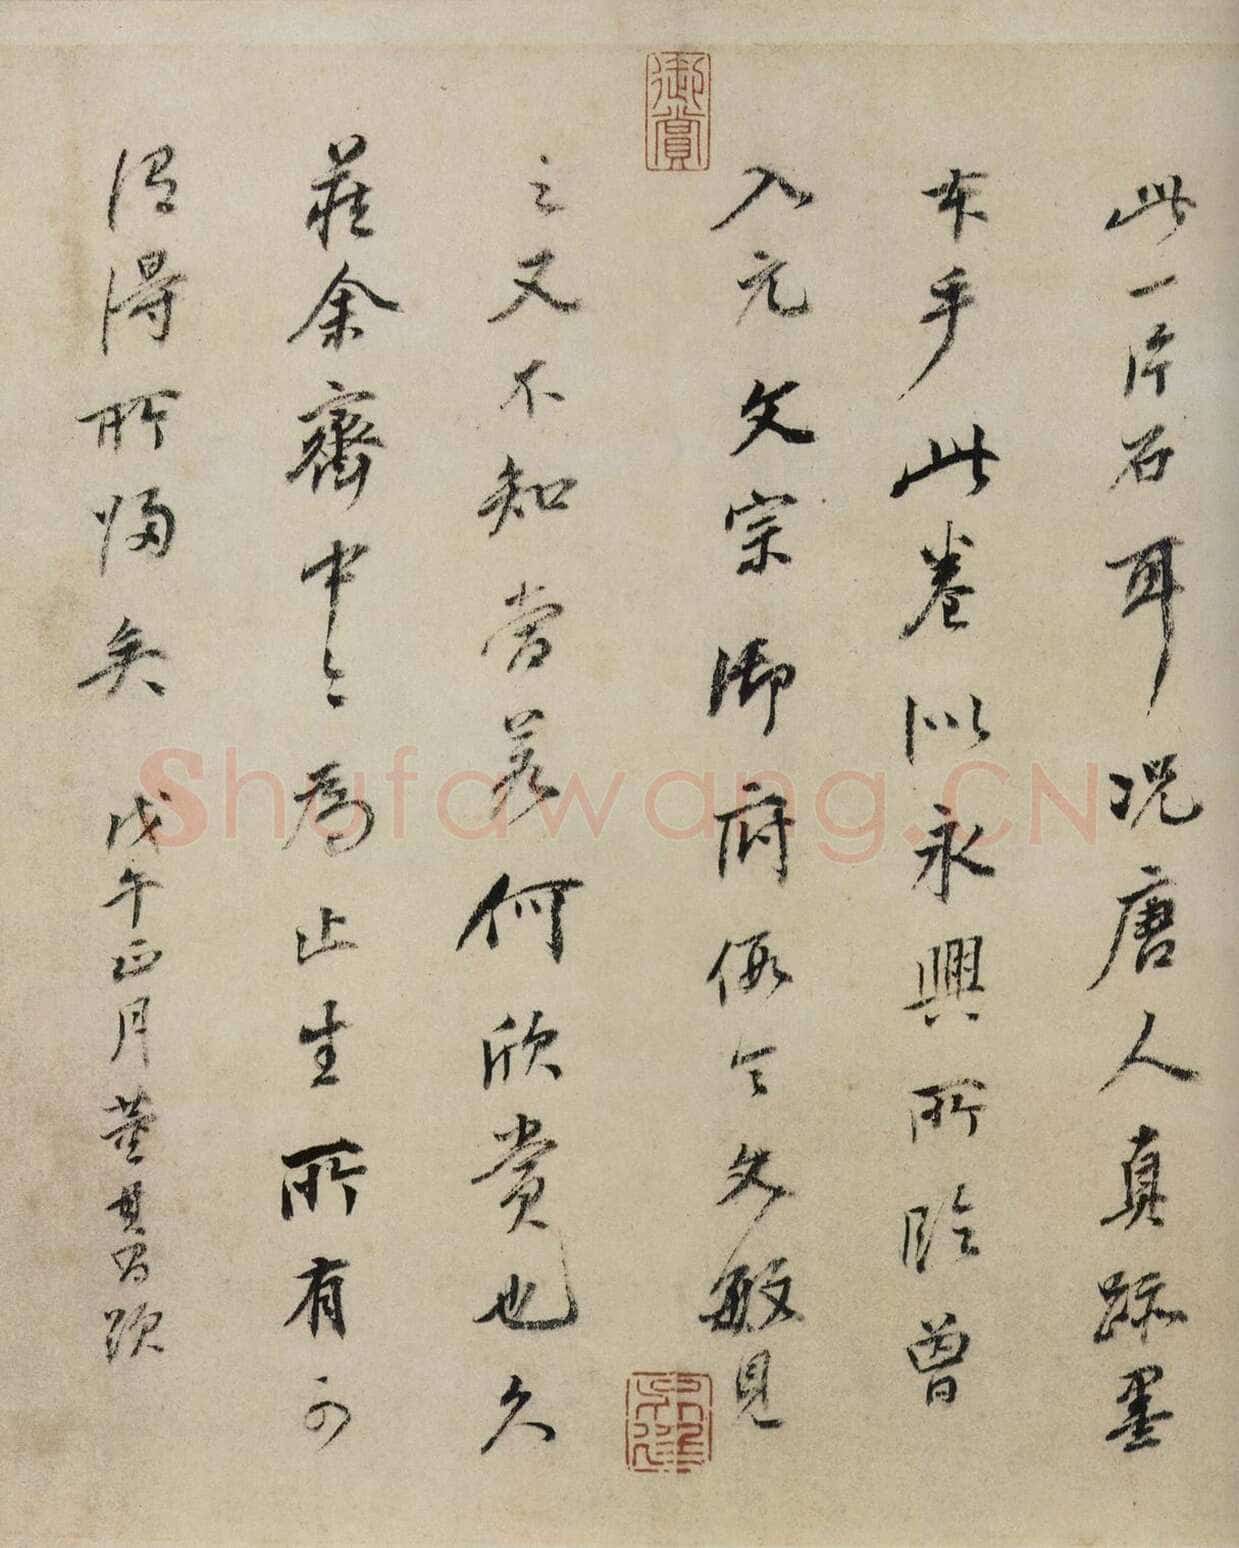 此一片石耳況唐人真跡墨
本乎此卷似永興所臨曾
入元文宗御府假令文敏見
之又不知當若何欣賞也久
藏余齋中今為止生所有可
謂得所歸矣 戊午正月董其昌題
御賞
Shufawang.CN